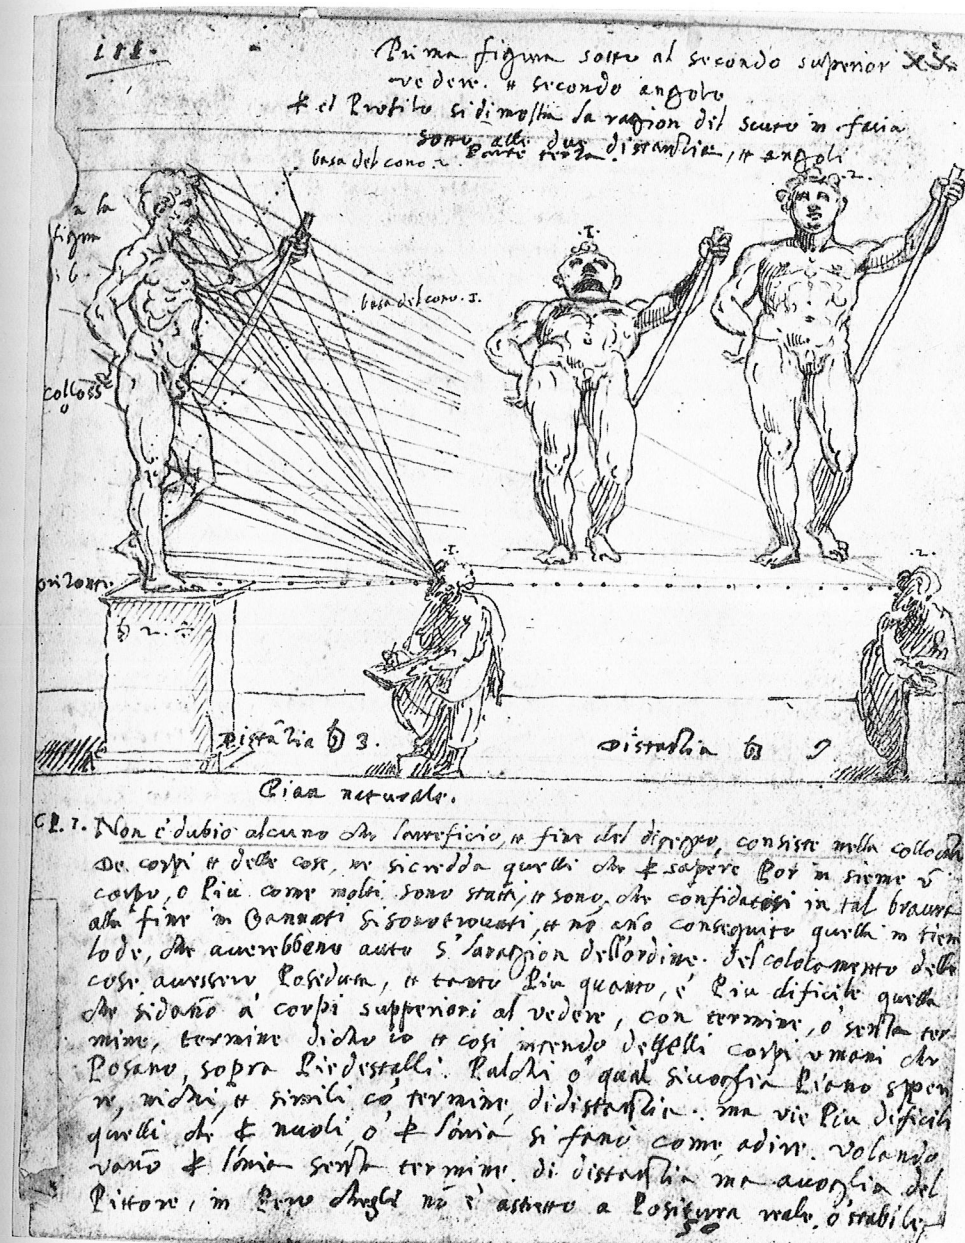 111.
Prima figura sotto al secondo superior
vedere. et secondo angolo
et el Profilo si dimostra la ragion del scurto in facia
sotto alle due distantie, et angoli
Parte terza.
basa del cono 2.
.2.
a la
figura
.1.
basa del cono .1.
colloss
o
.1.
.2.
orizonte
b 2.
Distātia b 3.
Distantia b 9
Pian naturale.
CP. 1. Non è dubio alcuno che l'arteficio, et fine del disegno, consiste nella
De corpi et delle cose, ne si credda quelli che sapere Por in sieme ū
corpo, o Piu come molti sono stati, et sono, che confidatosi in tal bravura
alla fine in Gannati si sono trovati, et nō anō conseguito quella in
lode, che averebbono auto s' la ragion dell'ordine. del colocamento delle
cose avessero Poseduta, et tanto Piu quanto, è Piu dificile quella
che si danō a corpi supperiori al vedere, con termine, o senza ter
mine, termine dicho io et cosi intendo de quelli corpi umani che
Posano, sopra Piedestalli. Palchi o qual si voglia Piano
re, nichi, et simili cō termine, di distantia. ma vie Piu dificili
quelli che nuoli, o l'aria si fano come, a dire. Volando
vanō l'aria senza termine. di distantia ma a voglia del
Pittore, in Pero chegli nō è astretto a Positura reale. o stabile,
50